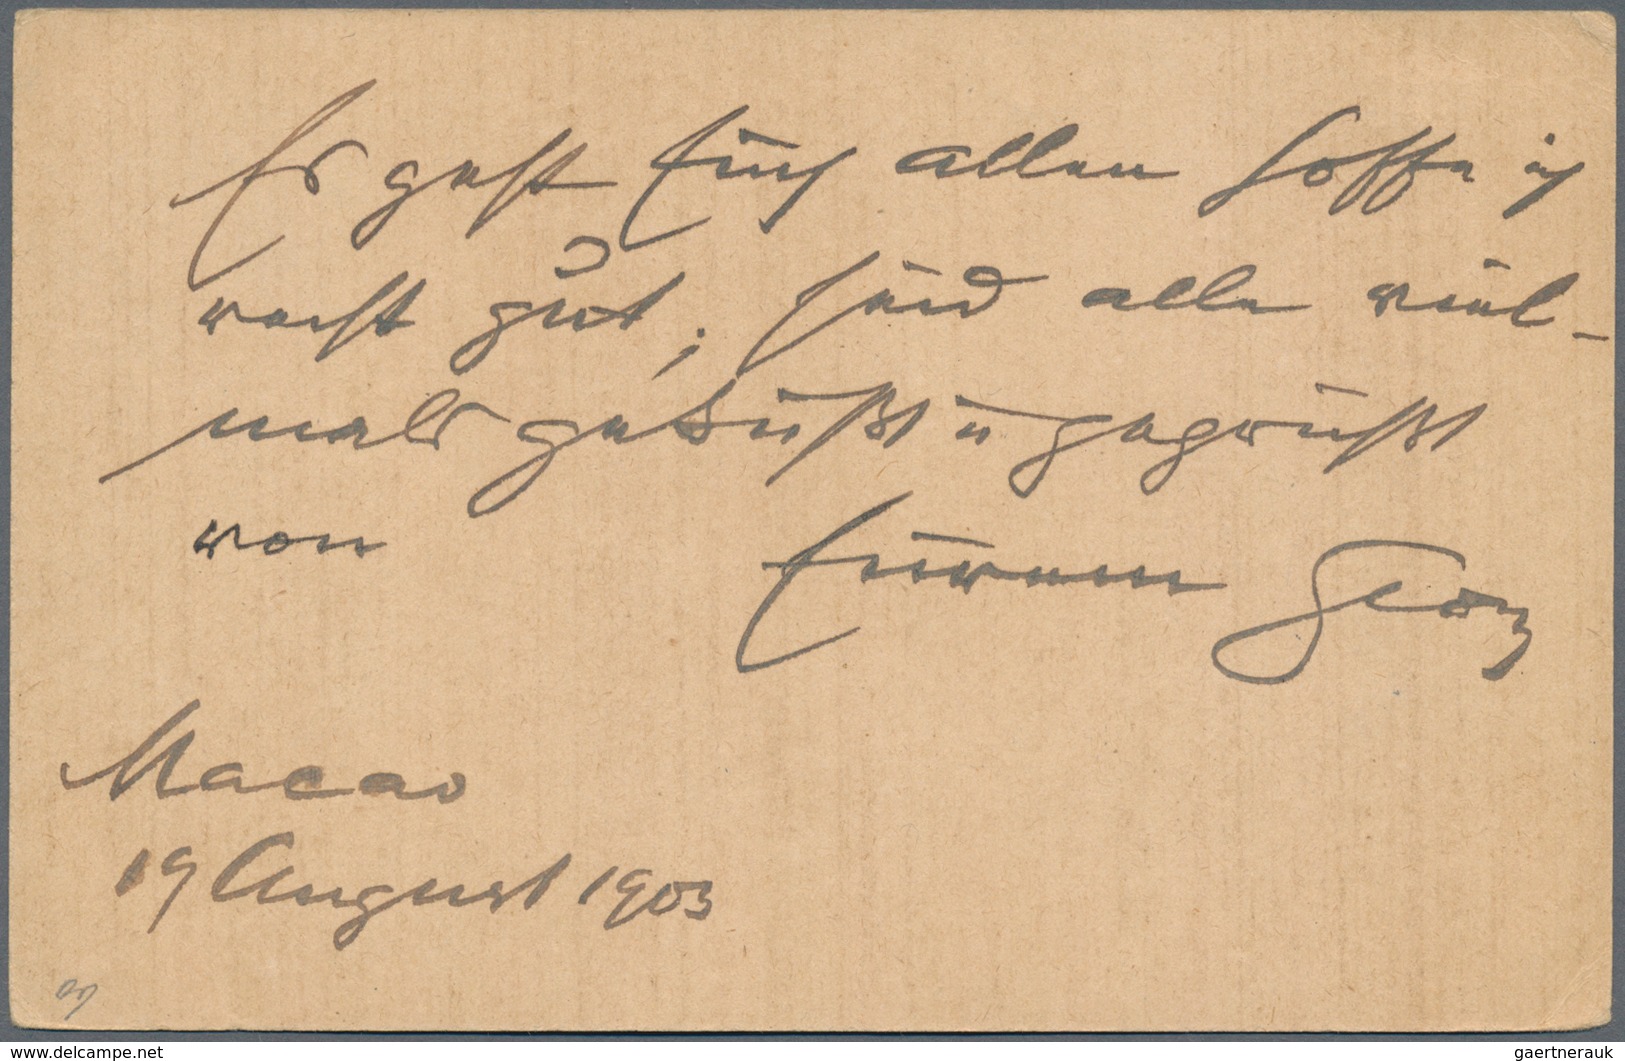 Es geht Euch allen hoffe ich
recht gut; seid alle viel-
mals geküßt u gegrüßt
von Eurem Georg
Macao
19 August 1903
www.delcampe.net
gaertnerauk